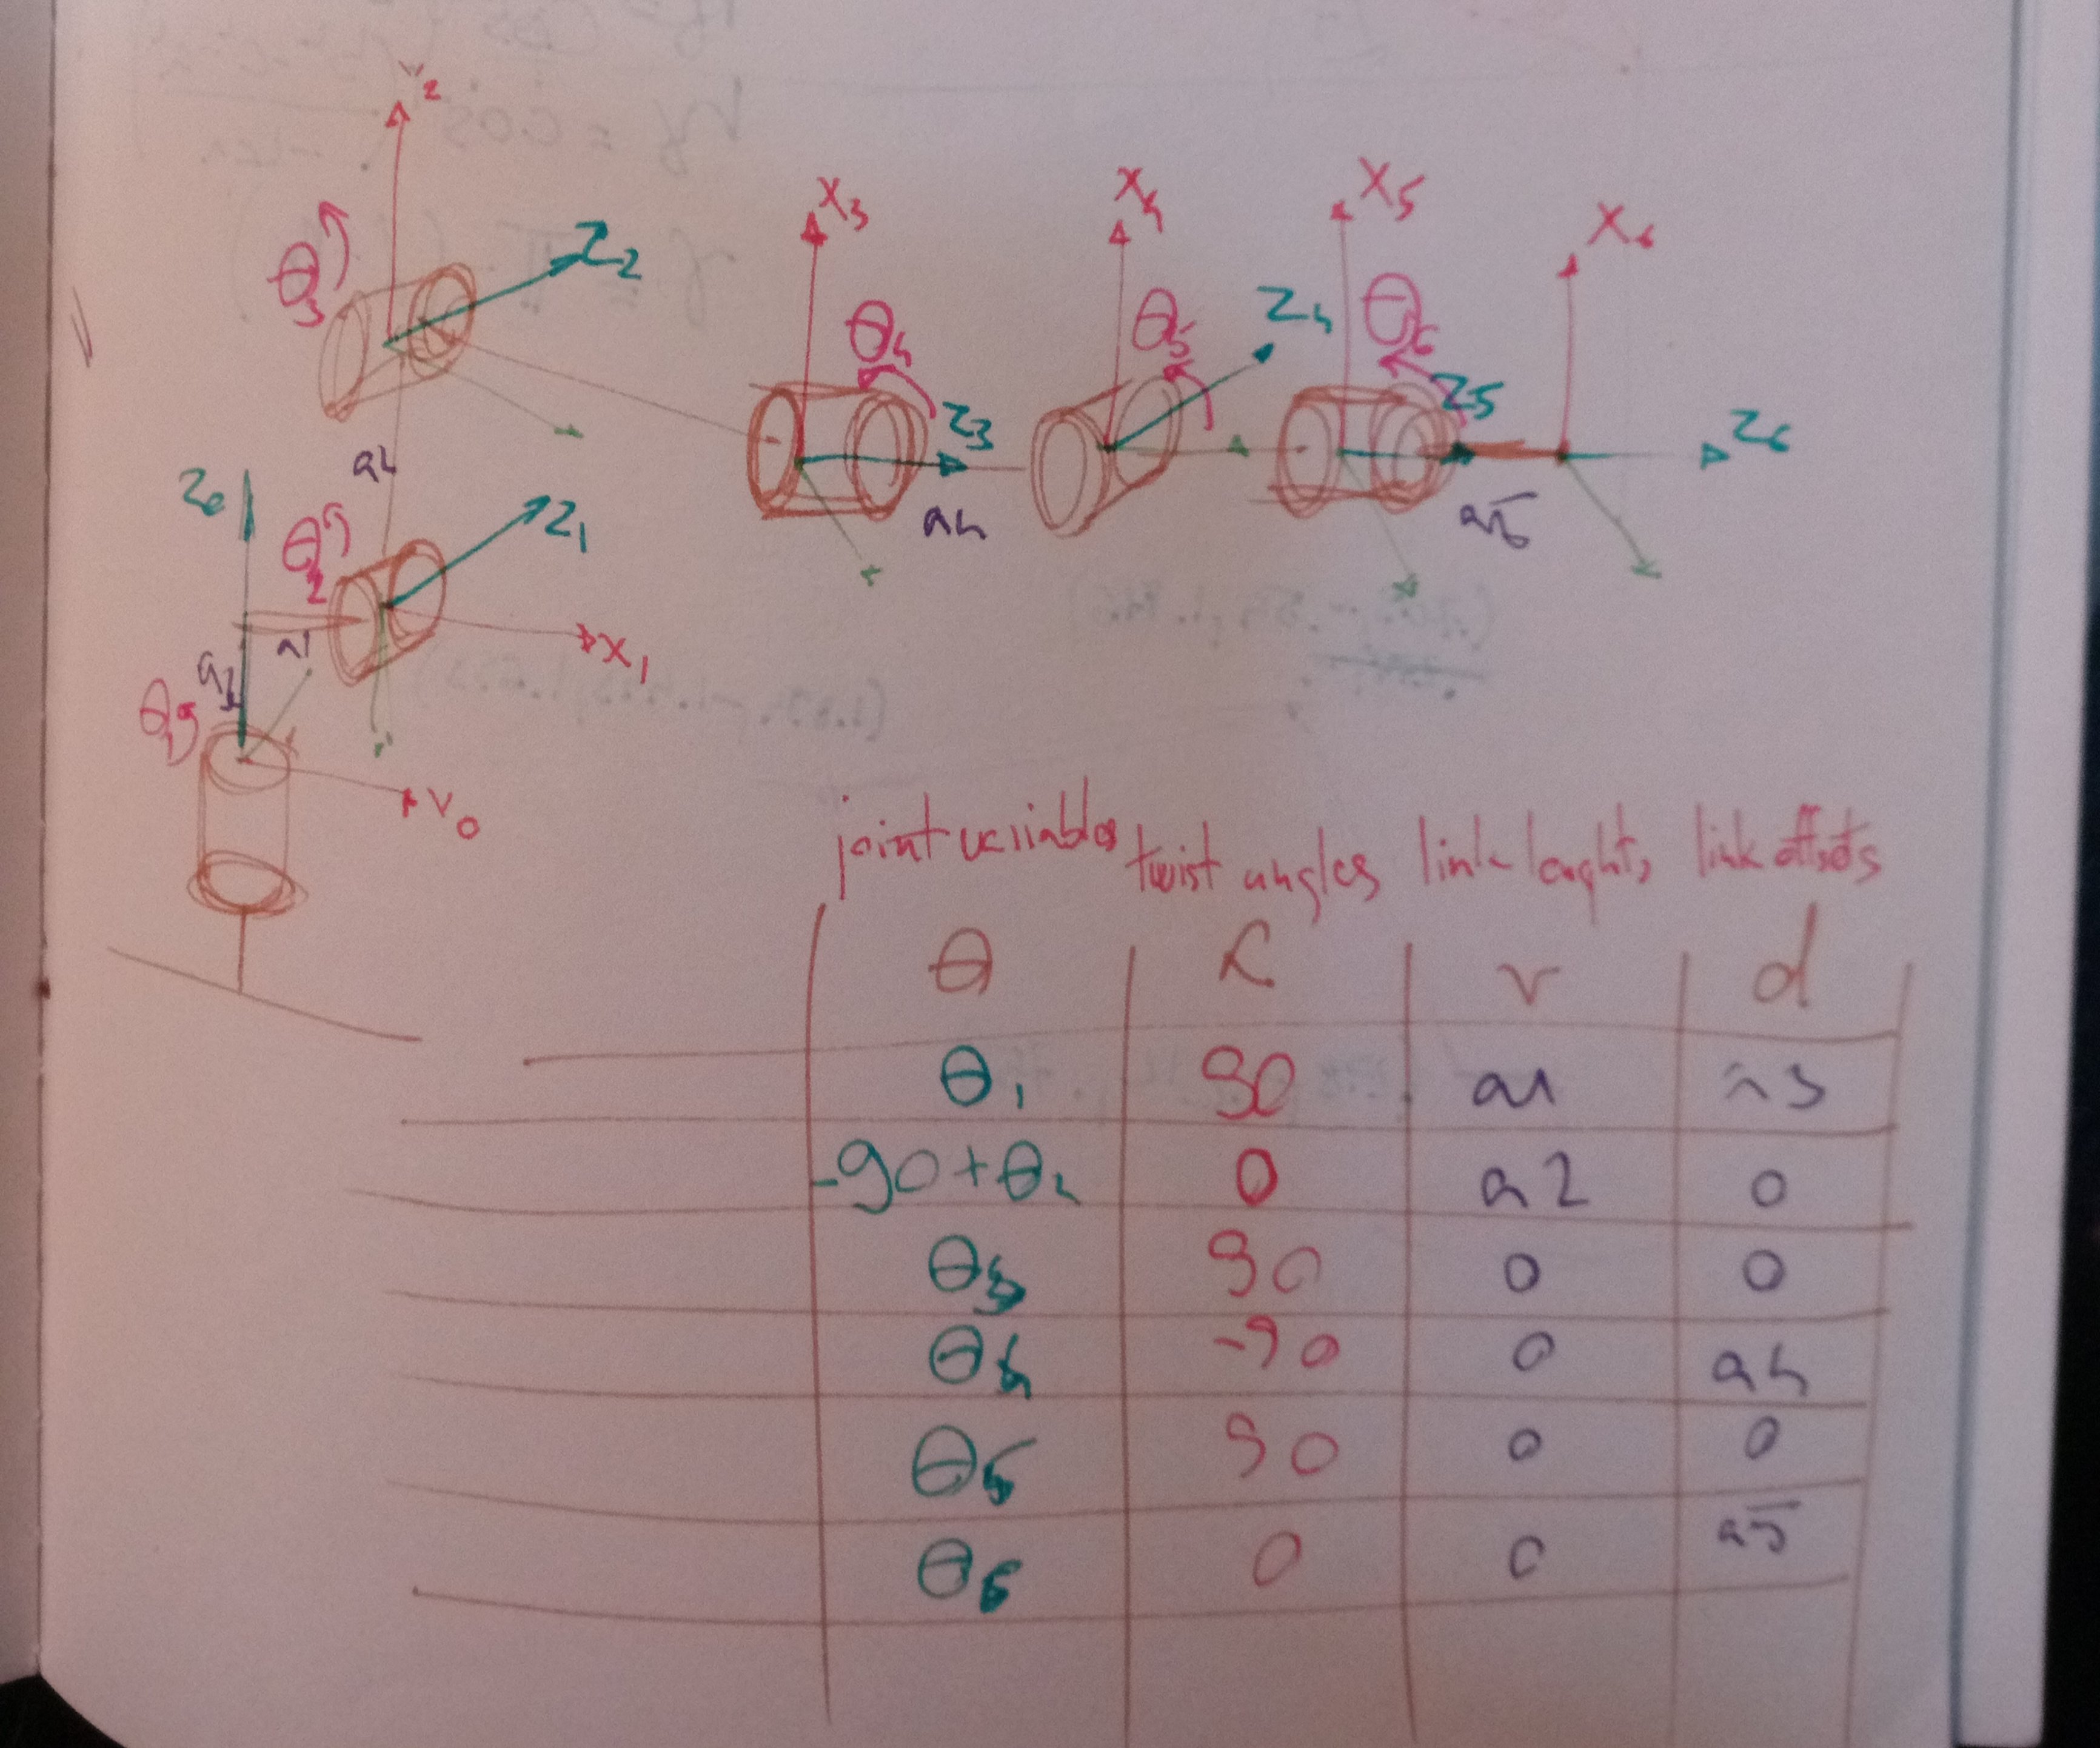 X2
X3
X4
X5
X6
θ3
Z2
θ4
θ5
Z4
θ6
Z5
Z3
Z6
a2
a4
a5
Z0
θ2
Z1
a1
X1
a3
θ1
X0
joint variables twist angles link lenght, link offsets
θ α r d
θ1 90 a1 a3
-90+θ2 0 a2 0
θ3 90 0 0
θ4 -90 0 a4
θ5 90 0 0
θ6 0 0 a5